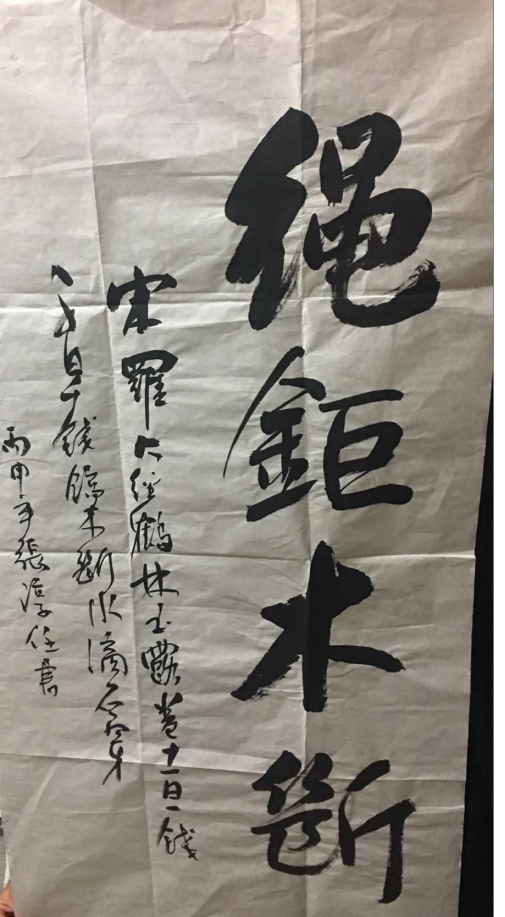 绳鉅木断
宋羅大经鶴林玉露卷十一日一錢
千日千錢绳木断水滴石穿
丙申年張淳任書